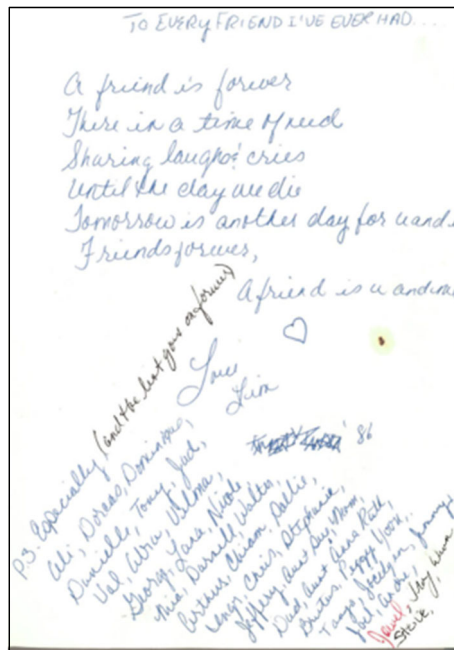 TO EVERY FRIEND I'VE EVER HAD....
A friend is forever
There in a time of need
Sharing laughs & cries
Until the day we die
Tomorrow is another day for u and
Friends forever,
A friend is u and
Love
'86
P.S. Especially (and the list goes on forever)
Ali, Dorcas, Dominique,
Danielle, Tony, Jud,
Val, Velma,
George, Lara, Nicole
Mia, Darrell, Walter,
Arthur, Chiam, Dollie,
Chris, Stephanie,
Jeffery, Aunt Sug, Mom,
Dad, Aunt Anna Ruth,
Peggy
Tanya,
Joel,
Jewel,
Steve,